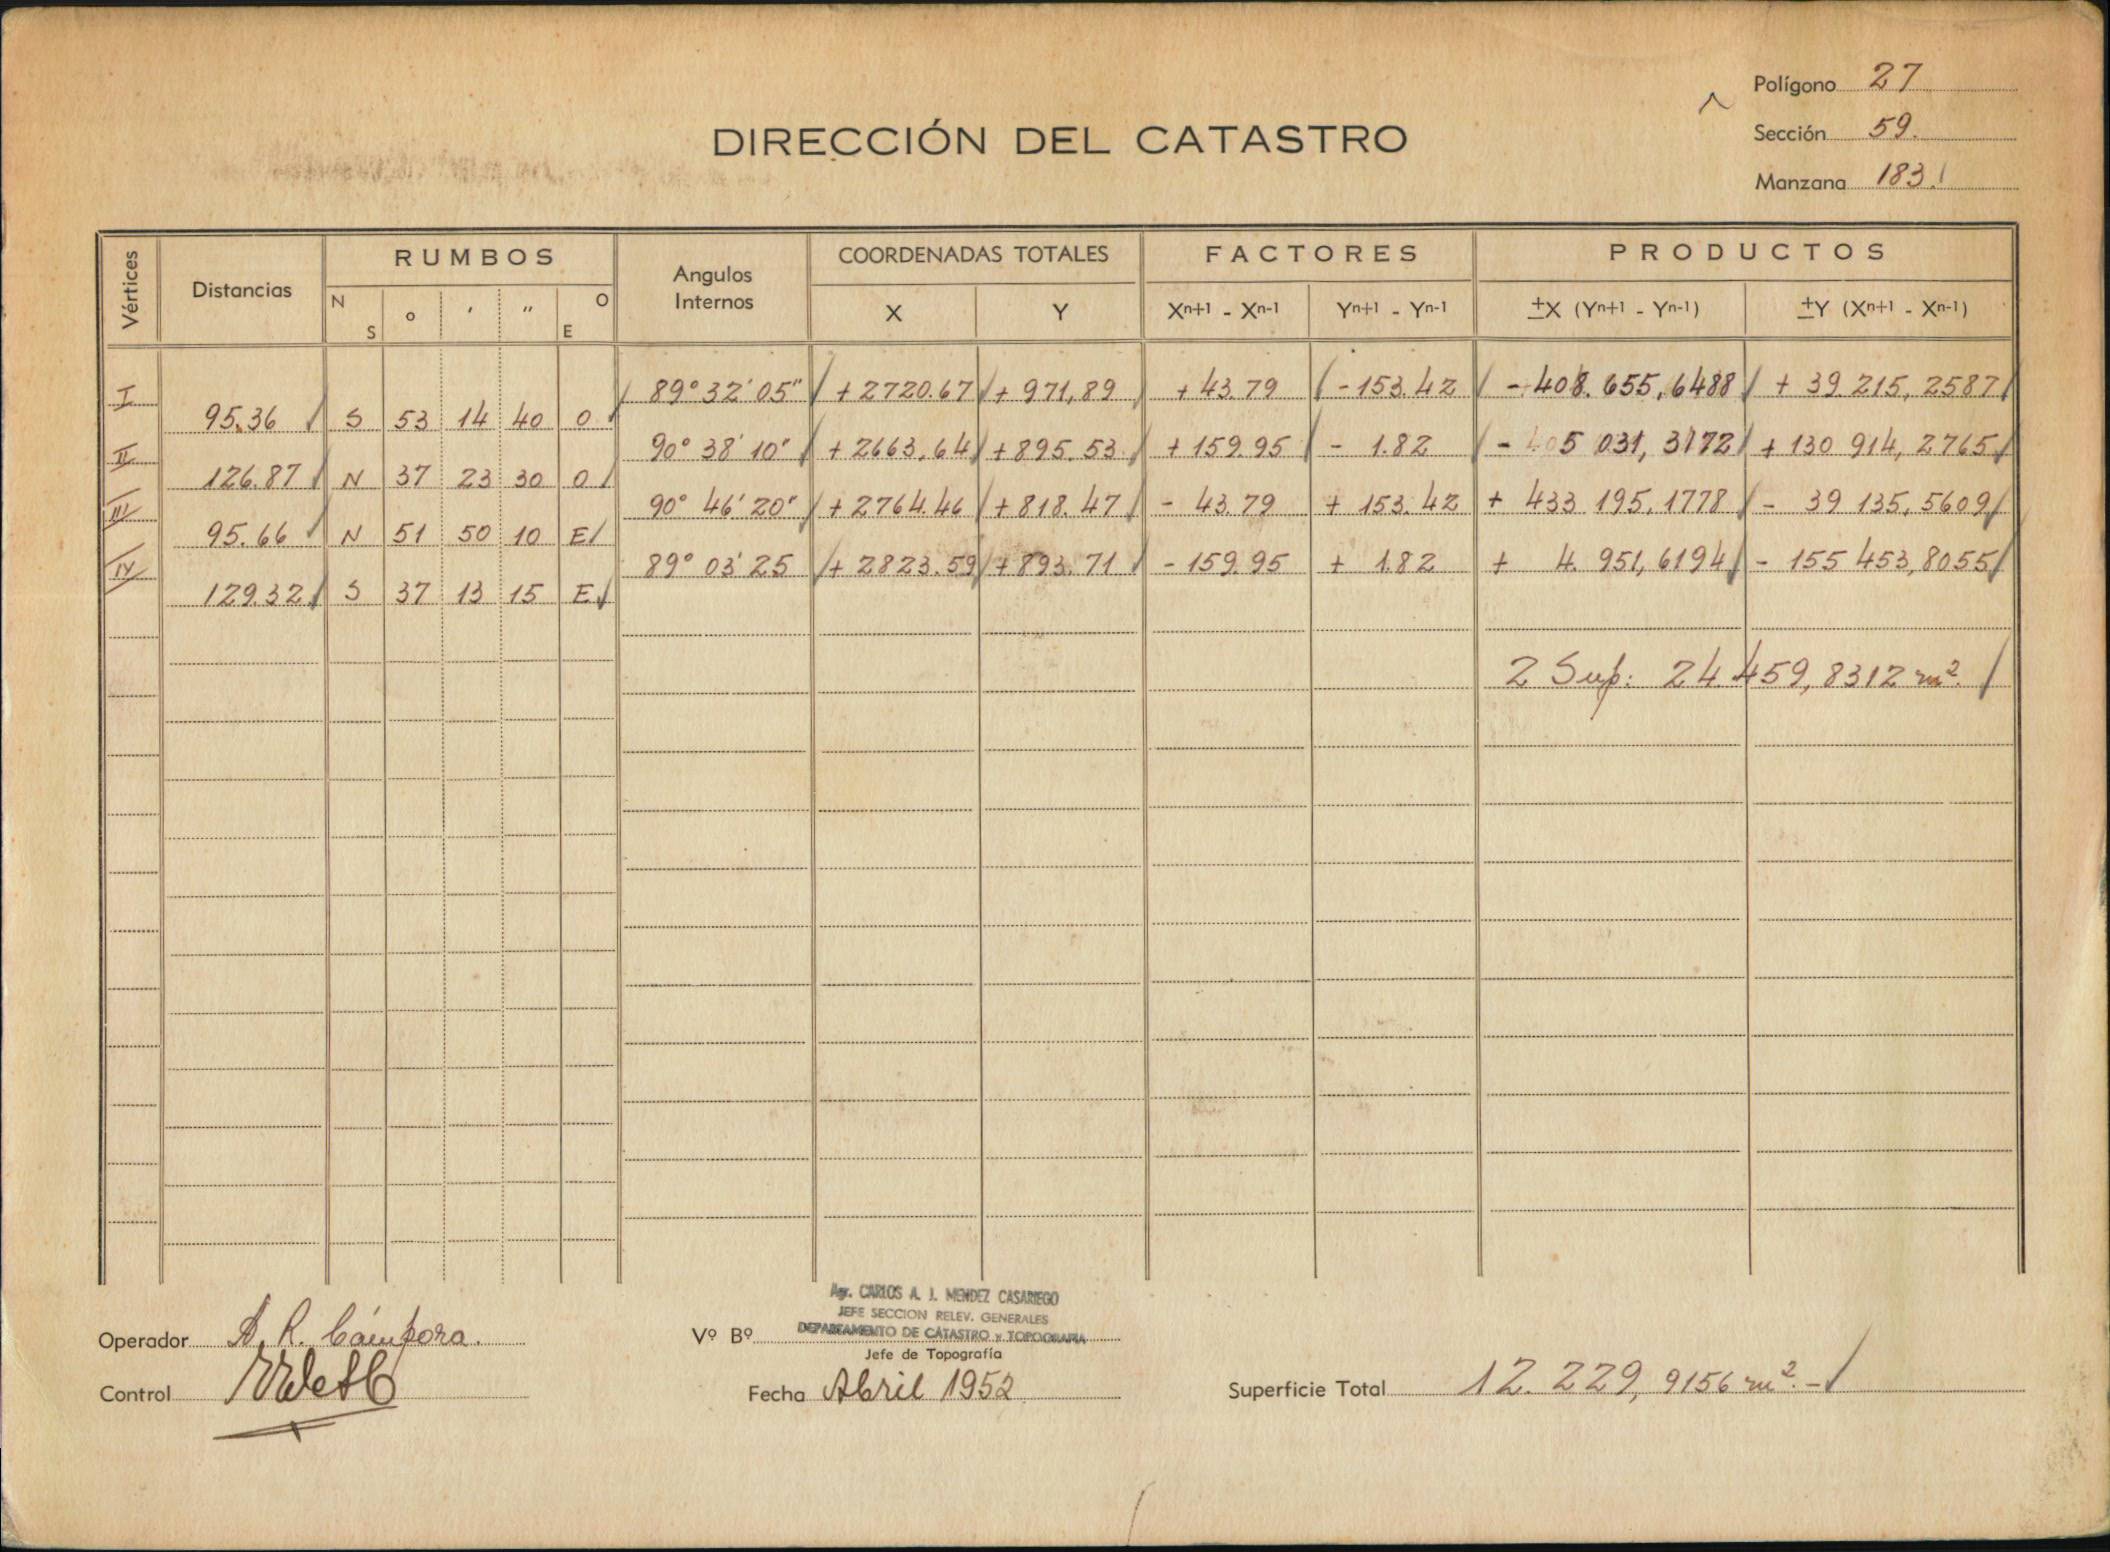 Polígono 27
DIRECCIÓN DEL CATASTRO
Sección 59.
Manzana 183.
Vértices Distancias RUMBOS Angulos Internos COORDENADAS TOTALES FACTORES PRODUCTOS
N S ° ' " O E X Y Xn+1 - Xn-1 Yn+1 - Yn-1 ±X (Yn+1 - Yn-1) ±Y (Xn+1 - Xn-1)
I 89° 32' 05" + 2720.67 + 971,89 + 43.79 - 153.42 - 408.655,6488 + 39.215,2587
95.36 S 53 14 40 O
II 90° 38' 10" + 2663,64 + 895.53 + 159.95 - 1.82 - 405 031,3172 + 130 914,2765
126.87 N 37 23 30 O
III 90° 46' 20" + 2764.46 + 818.47 - 43.79 + 153.42 + 433 195,1778 - 39 135,5609
95.66 N 51 50 10 E
IV 89° 03' 25 + 2823.59 + 893.71 - 159.95 + 1.82 + 4.951,6194 - 155 453,8055
129.32 S 37 13 15 E
2 Sup: 24.459,8312 m².
Agr. CARLOS A. J. MENDEZ CASARIEGO
JEFE SECCION RELEV. GENERALES
Operador A. R. Cámpora. Vº Bº DEPARTAMENTO DE CATASTRO y TOPOGRAFIA
Jefe de Topografía
Control Fecha Abril 1952 Superficie Total 12.229,9156 m².-